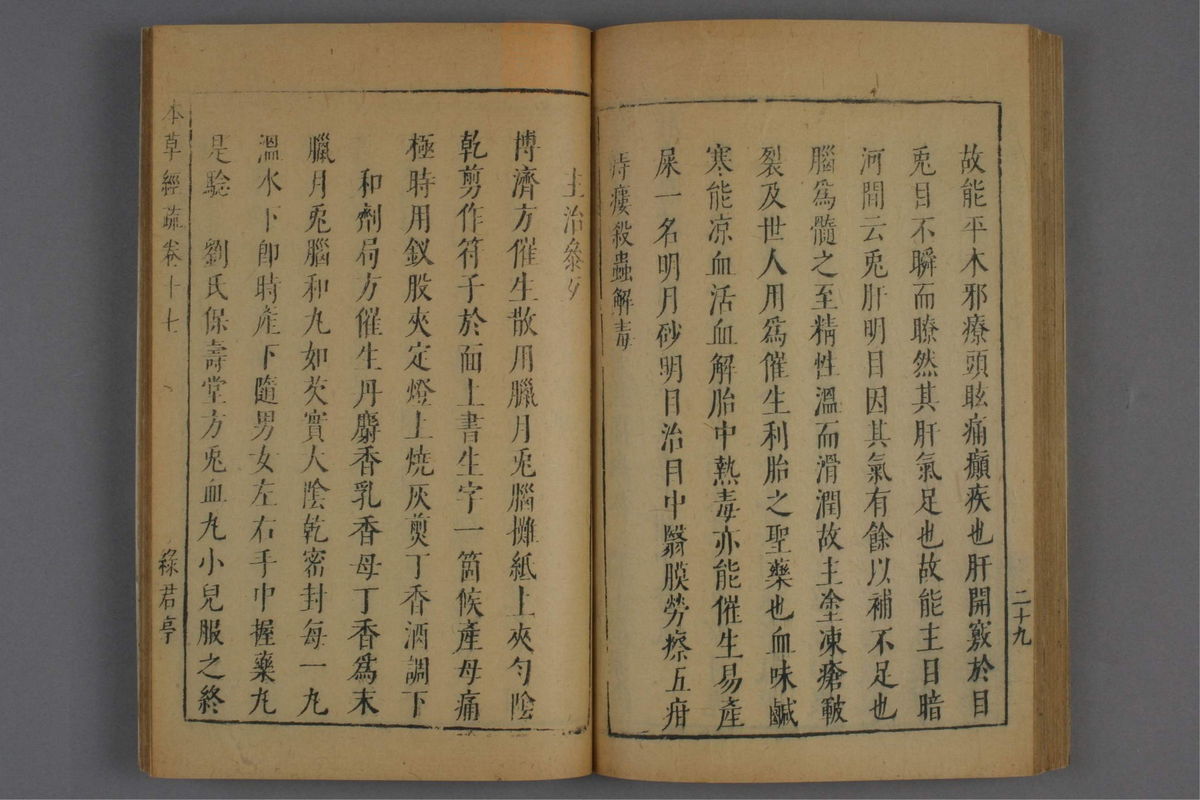 故能平木邪療頭眩痛癲疾也肝開竅於目
兎目不瞬而瞭然其肝氣足也故能主目暗
河間云兎肝明目因其氣有餘以補不足也
腦爲髓之至精性溫而滑潤故主塗凍瘡皸
裂及世人用爲催生利胎之聖藥也血味鹹
寒能凉血活血解胎中熱毒亦能催生易產
屎一名明月砂明目治目中翳膜勞瘵五疳
痔瘻殺蟲解毒
二十九
主治叅互
博濟方催生散用臘月兎腦攤紙上夾勻陰
乾剪作符子於面上書生字一箇候產母痛
極時用釵股夾定燈上燒灰煎丁香酒調下
和劑局方催生丹麝香乳香母丁香爲末
臘月兎腦和丸如芡實大陰乾密封每一丸
溫水下卽時產下隨男女左右手中握藥丸
是驗　劉氏保壽堂方兎血丸小兒服之終
本草經疏卷十七
綠君亭